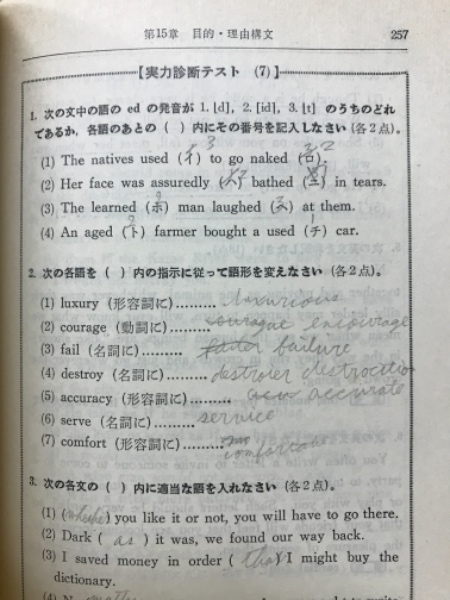 第15章 目的・理由構文 257
【実力診断テスト (7)】
1. 次の文中の語の ed の発音が 1. [d], 2. [id], 3. [t] のうちのどれ
であるか, 各語のあとの ( ) 内にその番号を記入しなさい (各2点)。
(1) The natives used (イ) 3 to go naked (ロ) 2.
(2) Her face was assuredly (ハ) bathed (ニ) in tears.
(3) The learned (ホ) man laughed (ヘ) at them.
(4) An aged (ト) farmer bought a used (チ) car.
2. 次の各語を ( ) 内の指示に従って語形を変えなさい (各2点)。
(1) luxury (形容詞に)......... luxurious
(2) courage (動詞に)......... encourage
(3) fail (名詞に)......... failure
(4) destroy (名詞に)......... destroier destroction
(5) accuracy (形容詞に)......... accurate
(6) serve (名詞に)......... service
(7) comfort (形容詞に).........
3. 次の各文の ( ) 内に適当な語を入れなさい (各2点)。
(1) (whether) you like it or not, you will have to go there.
(2) Dark ( as ) it was, we found our way back.
(3) I saved money in order ( that ) I might buy the
dictionary.